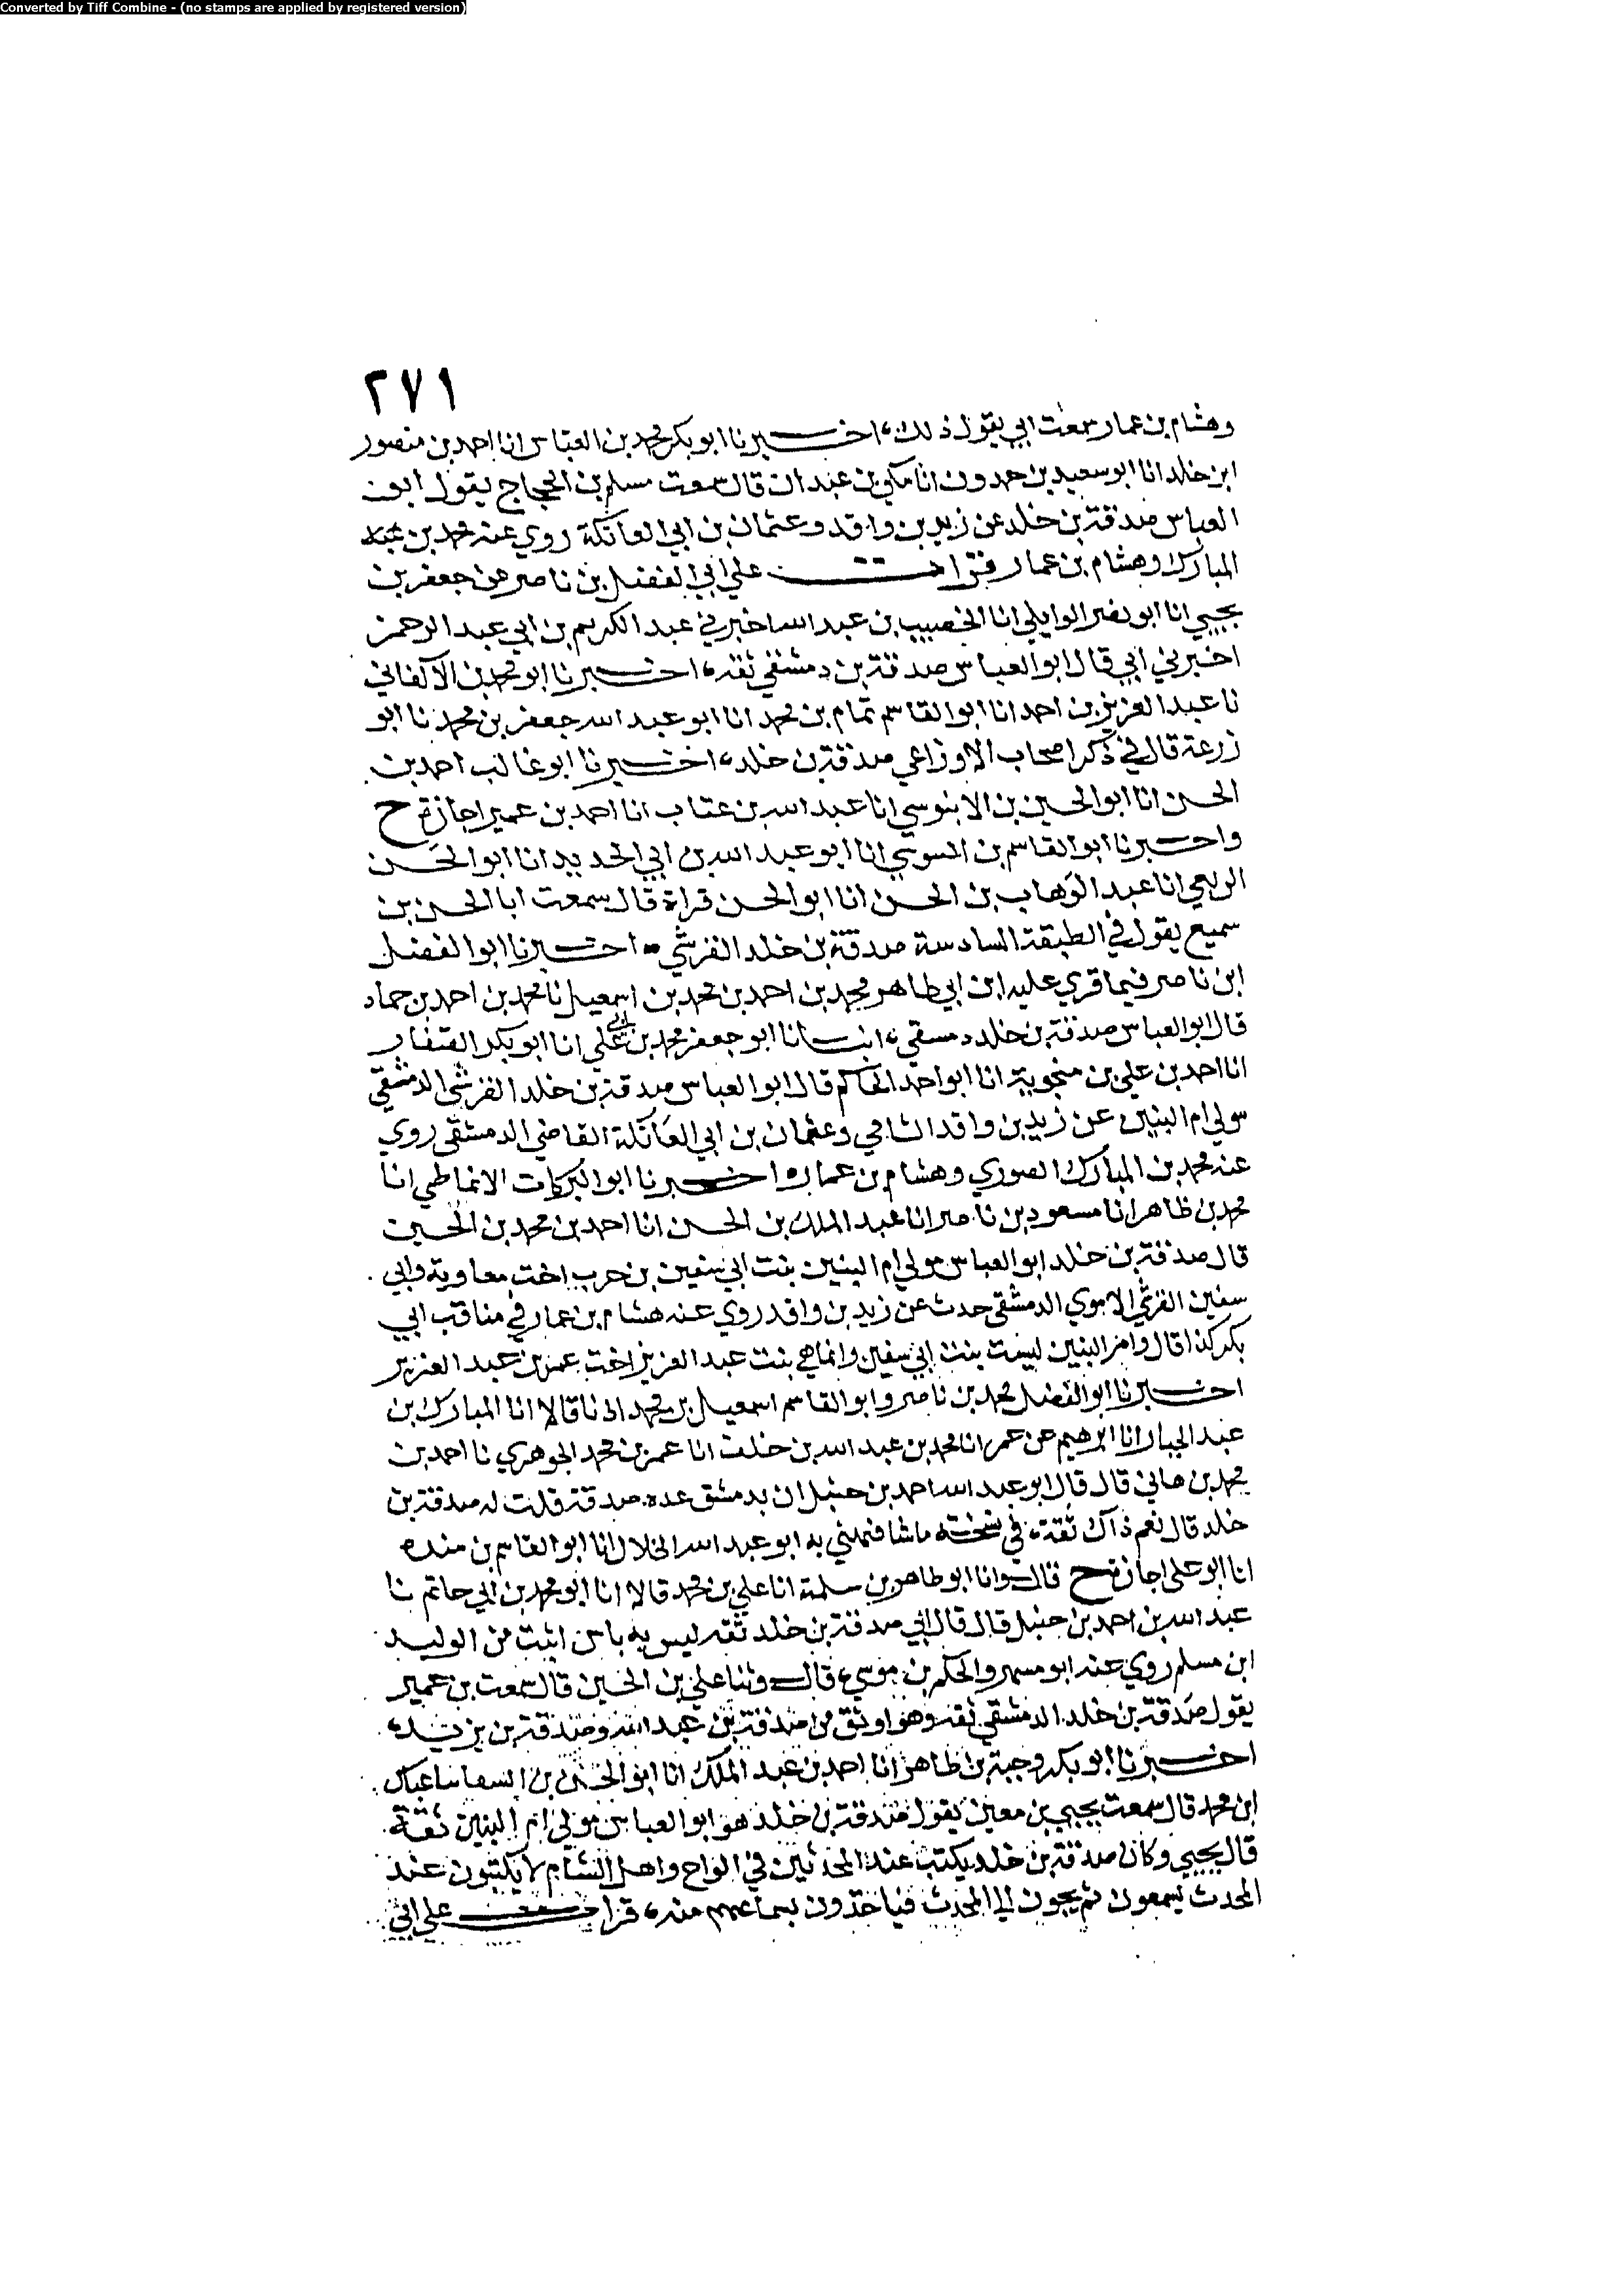 Converted by Tiff Combine - (no stamps are applied by registered version)
٢٧١
وهشام بن عمار سمعت ابي يقول ذلك، اخبرنا ابو بكر محمد بن العباس انا احمد بن منصور
ابن خلد انا ابو سعيد بن حمدون انا مكي بن عبدان قال سمعت مسلم بن الحجاج يقول ابو
العباس صدقة بن خلد عن زيد بن واقد وعثمان بن ابي العاتكة روي عنه محمد بن
المبارك وهشام بن عمار قرات علي ابي الفضل بن ناصر عن جعفر بن
يحيي انا ابو نصر الوايلي انا الخصيب بن عبد الله اخبرني عبد الكريم بن ابي عبد الرحمن
اخبرني ابي قال ابو العباس صدقة بن دمشقي ثقه، اخبرنا ابو محمد بن الاكفاني
نا عبد العزيز بن احمد انا ابو القاسم تمام بن محمد انا ابو عبد الله جعفر بن محمد نا ابو
زرعة قال في ذكر اصحاب الاوزاعي صدقة بن خلد، اخبرنا ابو غالب احمد بن
الحسن انا ابو الحسين بن الابنوسي انا عبد الله بن عتاب انا احمد بن عمير اجازة ح
واخبرنا ابو القاسم بن السوسي انا ابو عبد الله بن ابي الحديد انا ابو الحسن
الربعي انا عبد الوهاب بن الحسن انا ابو الحسن قراة قال سمعت ابا الحسن بن
سميع يقول في الطبقة السادسة صدقة بن خلد القرشي اخبرنا ابو الفضل
ابن ناصر فيما قري عليه ابن ابي طاهر محمد بن احمد بن محمد بن اسمعيل نا محمد بن احمد بن حماد
قال ابو العباس صدقة بن خلد دمسقي، انبانا ابو جعفر محمد بن ابي علي انا ابو بكر الصفار
انا احمد بن علي بن منجوية انا ابو احمد الحاكم قال ابو العباس صدقة بن خلد القرشي الدمشقي
مولي ام البنين عن زيد بن واقد الشامي وعثمان بن ابي العاتكة القاضي الدمشقي روي
عنه محمد بن المبارك الصوري وهشام بن عمار، اخبرنا ابو البركات الانماطي انا
محمد بن طاهر انا مسعود بن ناصر انا عبد الملك بن الحسن انا احمد بن محمد بن الحسين
قال صدقة بن خلد ابو العباس مولي ام البنين بنت ابي سفين بن حرب اخت معاوية وابي
سفين القرشي الاموي الدمشقي حدث عن زيد بن واقد روي عنه هشام بن عمار في مناقب ابي
بكر كذا قال وام البنين ليست بنت ابي سفين وانما هي بنت عبد العزيز اخت عمر بن عبد العزيز
اخبرنا ابو الفضل محمد بن ناصر وابو القاسم اسمعيل بن محمد اذنا قالا انا المبارك بن
عبد الجبار انا ابرهيم عن عمر انا محمد بن عبد الله بن خلف انا عمر بن محمد الجوهري نا احمد بن
محمد بن هاني قال قال ابو عبد الله احمد بن حنبل ان بدمشق عده صدقة قلت له صدقة بن
خلد قال نعم ذاك ثقة، في نسخته ما شافهني به ابو عبد الله الخلال انا ابو القاسم بن منده
انا ابو علي اجازة ح قال وانا ابو طاهر بن سلمة انا علي بن محمد قالا انا ابو محمد بن ابي حاتم نا
عبد الله بن احمد بن حنبل قال قال ابي صدقة بن خلد ثقه ليس به باس اثبت من الوليد
ابن مسلم روي عنه ابو مسهر والحكم بن موسي، قال وثنا علي بن الحسين قال سمعت بن عمير
يقول صدقة بن خلد الدمشقي ثقه وهو اوثق من صدقة بن عبد الله وصدقة بن يزيد،
اخبرنا ابو بكر وجيه بن طاهر انا احمد بن عبد الملك انا ابو الحسن بن السقا نا عباس
ابن محمد قال سمعت يحيي بن معين يقول صدقة بن خلد هو ابو العباس مولي ام البنين ثقة
قال يحيي وكان صدقة بن خلد يكتب عند المحدثين في الواح واهل الشام لا يكتبون عند
المحدث يسمعون ثم يجون الي المحدث فياخذون سماعهم منه، قرات علي ابي